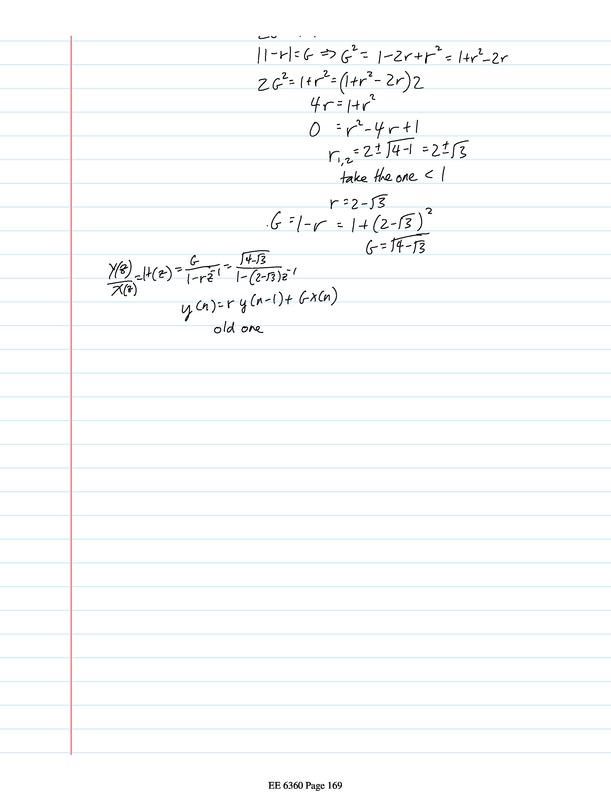 |1-r|=G ⇒ G² = 1-2r+r² = 1+r²-2r
2G²=1+r²=(1+r²-2r)2
4r=1+r²
0 =r²-4r+1
r₁,₂=2±√4-1 =2±√3
take the one < 1
r=2-√3
G =1-r = 1+(2-√3)²
G=√4-√3
Y(z)/X(z)=H(z)=G/1-rz⁻¹=√4-√3/1-(2-√3)z⁻¹
y(n)=r y(n-1)+Gx(n)
old one
EE 6360 Page 169